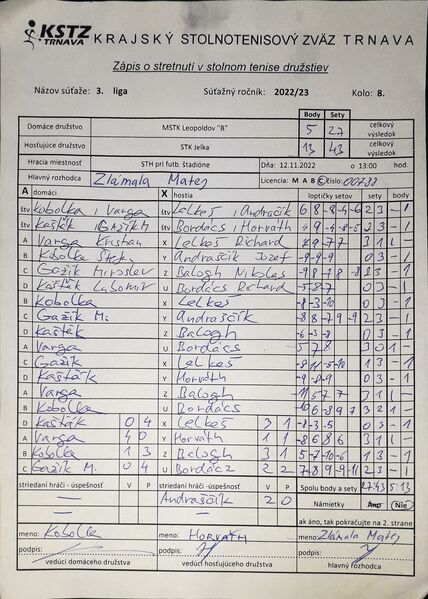 KSTZ TRNAVA KRAJSKÝ STOLNOTENISOVÝ ZVÄZ TRNAVA
Zápis o stretnutí v stolnom tenise družstiev
Názov súťaže: 3. liga Súťažný ročník: 2022/23 Kolo: 8.
Body Sety
Domáce družstvo MSTK Leopoldov "B" 5 27 celkový výsledok
Hosťujúce družstvo STK Jelka 13 43 celkový výsledok
Hracia miestnosť STH pri futb. štadióne Dňa: 12.11.2022 o 13:00 hod.
Hlavný rozhodca Zlámala Matej Licencia: M A B C číslo: 00788
A domáci X hostia loptičky setov sety body
štv Kobolka, Varga štv Lelkeš, Andračik 6 8 -8 -4 -6 2 3 - 1
štv Kašták, Gažík M štv Bordács, Horváth 4 9 -4 -8 -5 2 3 - 1
A Varga Krištian X Lelkeš Richard 3 1 1 -
B Kobolka Y Andraščik Jozef -9 -9 -9 0 3 - 1
C Gažík Miroslav Z Balogh Nikolas 2 3 - 1
D Kašták Ľubomír U Bordács Richard 0 3 - 1
B Kobolka X Lelkeš -8 -3 -10 0 3 - 1
C Gažík M. Y Andraščik 2 3 - 1
D Kašták Z Balogh -6 -3 -8 0 3 - 1
A Varga U Bordács 5 7 8 3 0 1 -
C Gažík X Lelkeš -8 11 -5 -10 1 3 - 1
D Kašták Y Horváth -9 -8 -9 0 3 - 1
A Varga Z Balogh 3 1 1 -
B Kobolka U Bordács 3 2 1 -
D Kašták 0 4 X Lelkeš 3 1 -8 -3 -5 0 3 - 1
A Varga 4 0 Y Horváth 1 1 -8 6 8 6 3 1 1 -
B Kobolka 1 3 Z Balogh 3 1 5 -7 -10 -6 1 3 - 1
C Gažík M. 0 4 U Bordács 2 2 -7 8 9 -9 -11 2 3 - 1
striedaní hráči - úspešnosť V P striedaní hráči - úspešnosť V P Spolu body a sety 27:43 5:13
Andraščik 2 0 Námietky Áno Nie
ak áno, tak pokračujte na 2. strane
meno: Kobolka meno: HORVÁTH meno: Zlámala Matej
podpis: podpis: podpis:
vedúci domáceho družstva vedúci hosťujúceho družstva hlavný rozhodca